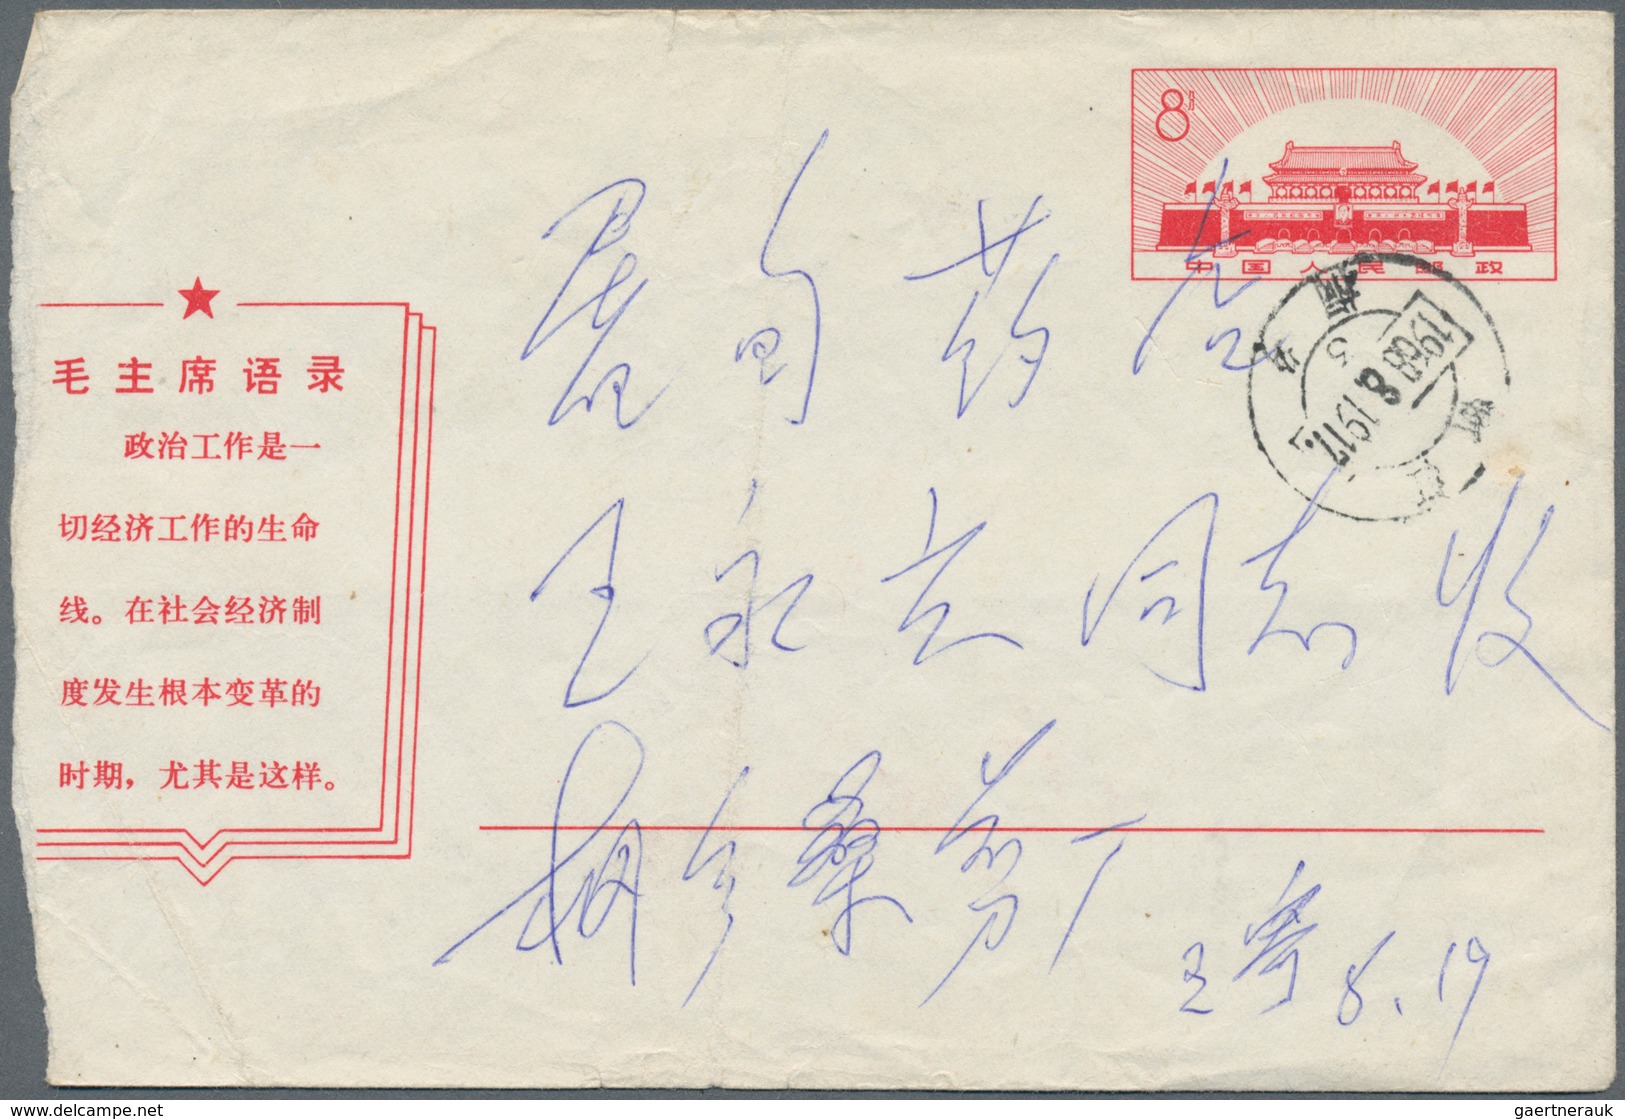 8分
中国人民邮政
1968.8.19.17
毛主席语录
政治工作是一
切经济工作的生命
线。在社会经济制
度发生根本变革的
时期，尤其是这样。
药
王永立同志收
厂
王寄 8.19
delcampe.net
gaertnerauk